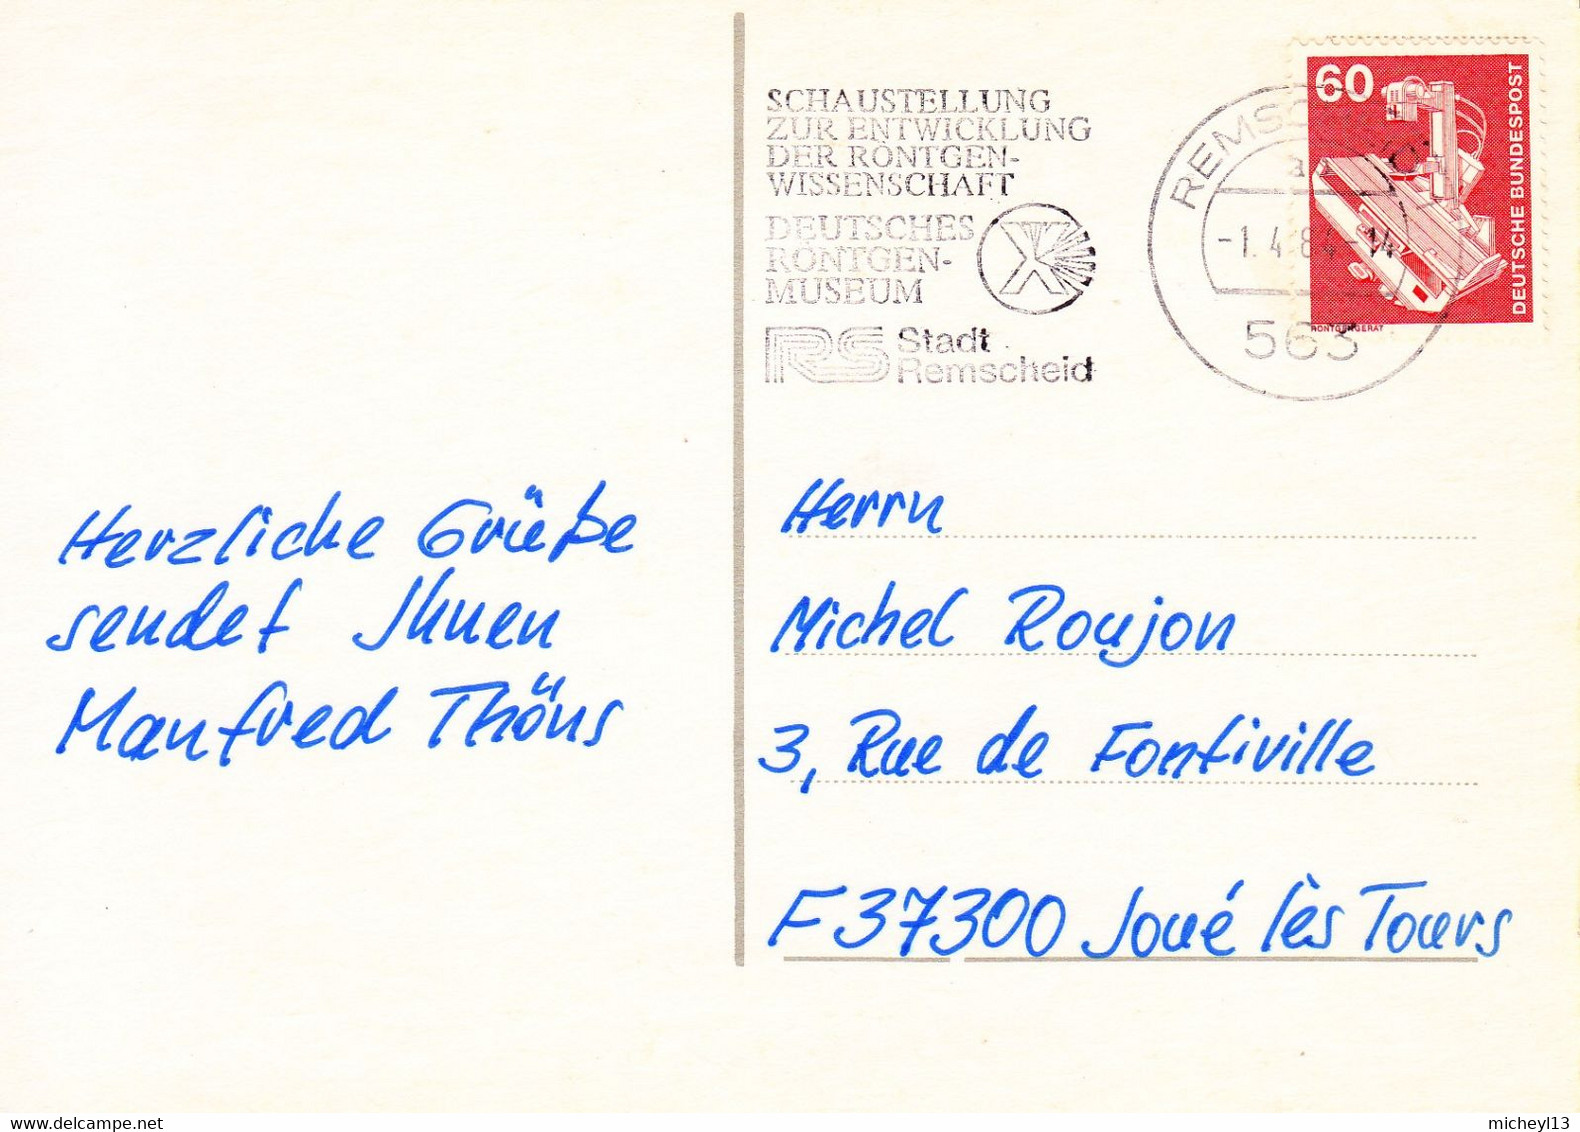 SCHAUSTELLUNG
ZUR ENTWICKLUNG
DER RÖNTGEN-
WISSENSCHAFT
DEUTSCHES
RÖNTGEN-
MUSEUM
X
RS Stadt
Remscheid
a
-1.4.84-14
563
60
DEUTSCHE BUNDESPOST
RÖNTGENGERÄT
Herzliche Grüße
sendet Ihnen
Manfred Thöns
Herrn
Michel Roujon
3, Rue de Fontiville
F 37300 Joué lès Tours
micheyl13